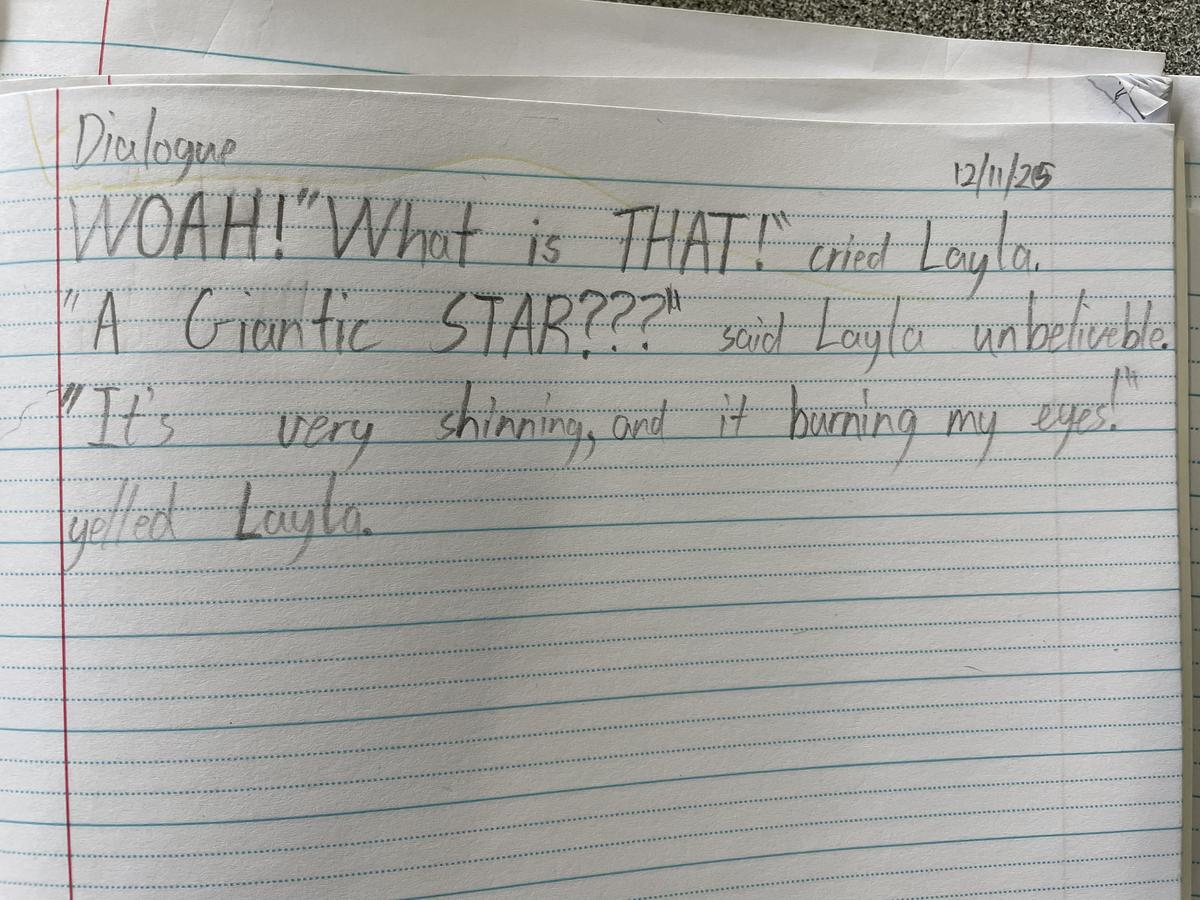 Dialogue
12/11/25
WOAH!"What is THAT!" cried Layla.
"A Giantic STAR???" said Layla unbeliveble.
"It's very shinning, and it burning my eyes!"
yelled Layla.